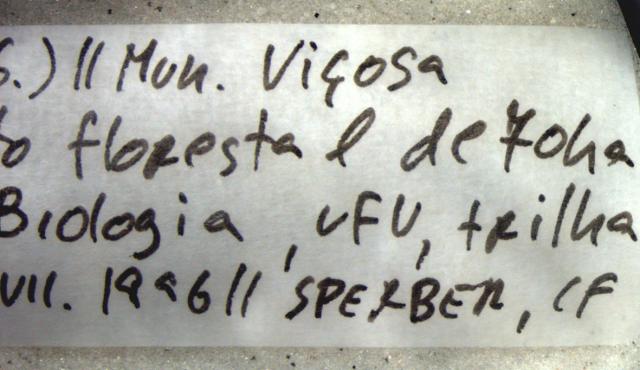 G.) || Mun. Viçosa
to florestal de folha
Biologia, UFV, trilha
VII. 1996 || SPERBER, CF